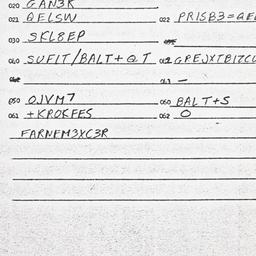 020 GAN3K
021 QELSW 022 PRISB3=QE
030 SKL8EP
040 SUFIT/BALT+QT 042 GREJXTBITCU
043 —
050 OJVM7 060 BALT+S
061 +KROKFES 062 O
FARNFM3XC3R